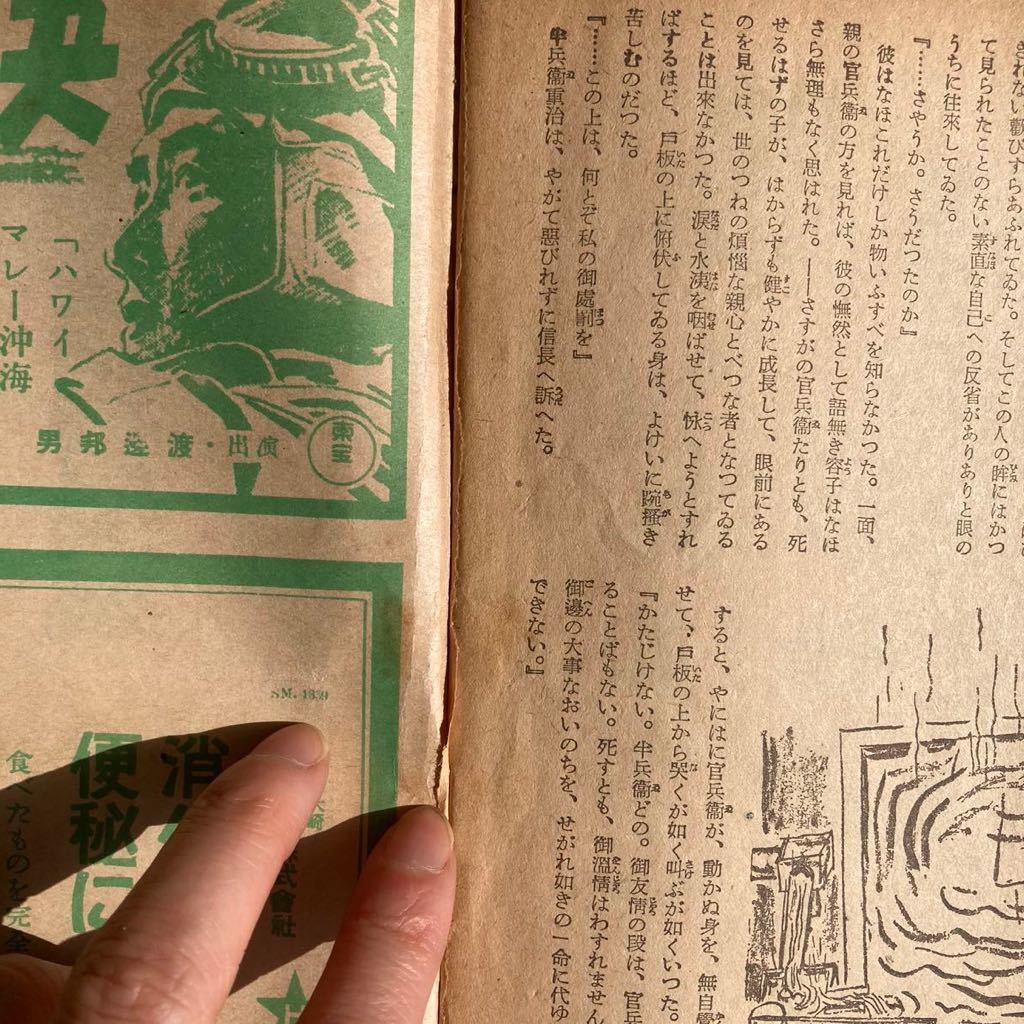 て見られたことのない素直な自己への反省がありありと眼の
うちに往來してゐた。
『……さやうか。さうだつたのか』
彼はなほこれだけしか物いふすべを知らなかつた。一面、
親の官兵衞の方を見れば、彼の憮然として語無き容子はなほ
さら無理もなく思はれた。――さすがの官兵衞たりとも、死
せるはずの子が、はからずも健やかに成長して、眼前にある
のを見ては、世のつねの煩惱な親心とべつな者となつてゐる
ことは出來なかつた。涙と水洟を咽ばせて、怺へようとすれ
ばするほど、戸板の上に俯伏してゐる身は、よけいに踠掻き
苦しむのだつた。
『……この上は、何とぞ私の御處罰を』
半兵衞重治は、やがて惡びれずに信長へ訴へた。
すると、やにはに官兵衞が、動かぬ身を、無自覺
せて、戸板の上から哭くが如く叫ぶが如くいつた。
『かたじけない。半兵衞どの。御友情の段は、官兵
ることばもない。死すとも、御溫情はわすれません
御邊の大事なおいのちを、せがれ如きの一命に代ゆ
できない。』
決
「ハワイ
マレー沖海
東宝
男邦邊渡・出演
SM. 1839
式會社
消化
便秘に
食べたものを完全